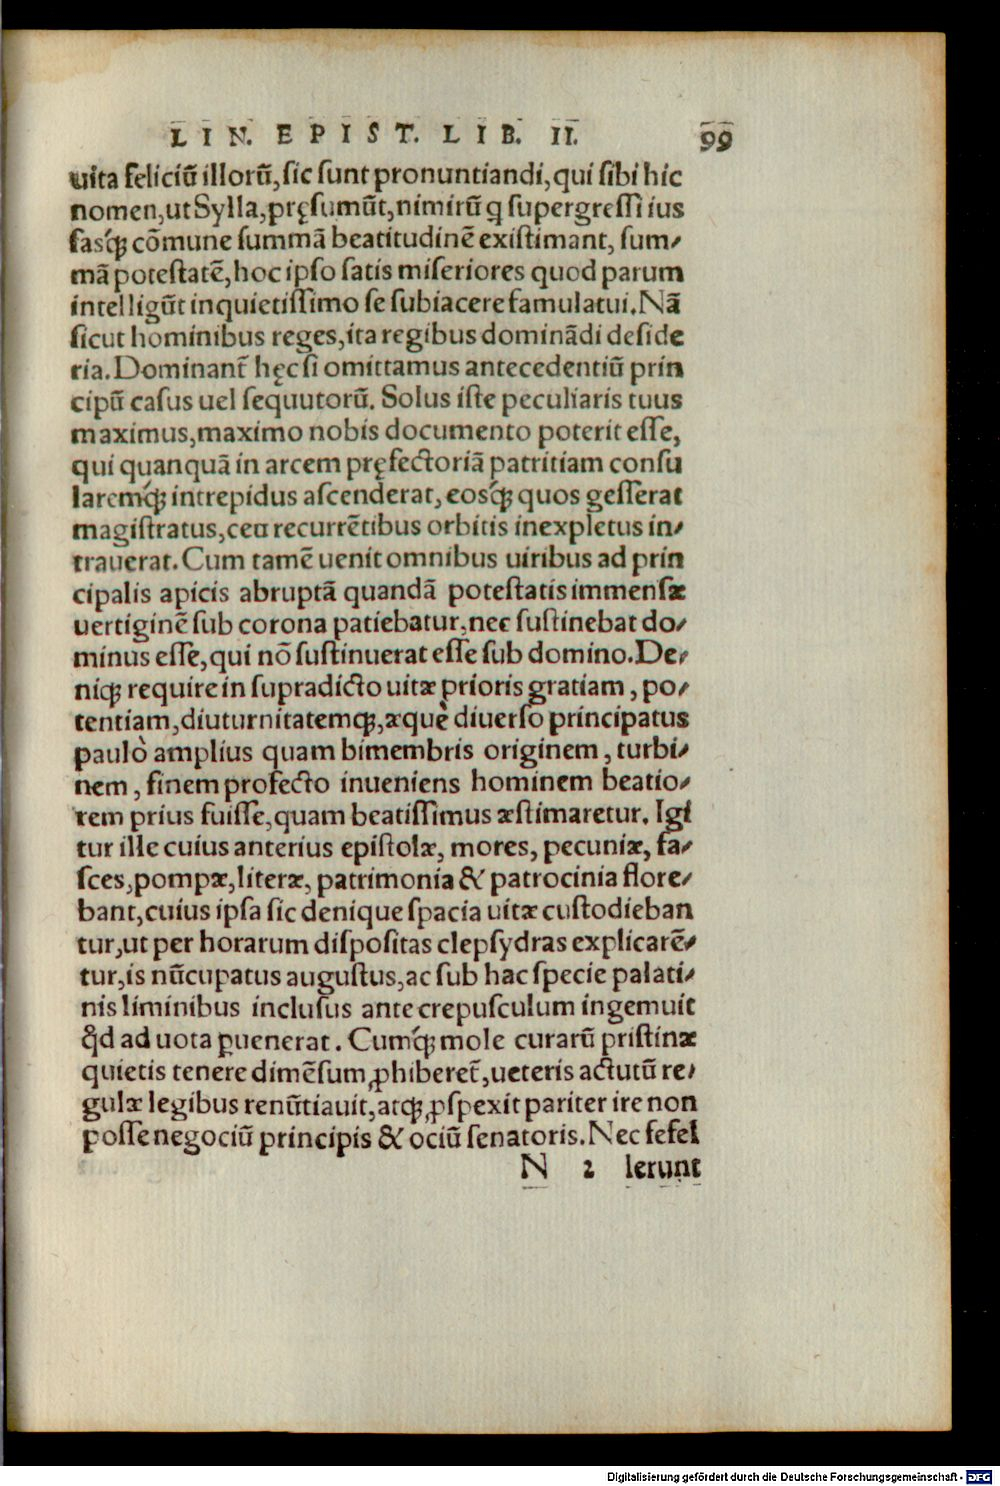 LIN. EPIST. LIB. II. 99
uita feliciũ illorũ, sic sunt pronuntiandi, qui sibi hic
nomen, ut Sylla, pręsumũt, nimirũ ꝙ supergressi ius
fasq́ꝫ cõmune summã beatitudinẽ existimant, sum⸗
mã potestatẽ, hoc ipso satis miseriores quod parum
intelligũt inquietissimo se subiacere famulatui. Nã
sicut hominibus reges, ita regibus dominãdi deside
ria. Dominant̃ hęc si omittamus antecedentiũ prin
cipũ casus uel sequutorũ. Solus iste peculiaris tuus
maximus, maximo nobis documento poterit esse,
qui quanquã in arcem pręfectoriã patritiam consu
laremq́ꝫ intrepidus ascenderat, eosq́ꝫ quos gesserat
magistratus, ceu recurrẽtibus orbitis inexpletus in⸗
trauerat. Cum tamẽ uenit omnibus uiribus ad prin
cipalis apicis abruptã quandã potestatis immensæ
uertiginẽ sub corona patiebatur, nec sustinebat do⸗
minus esse, qui nõ sustinuerat esse sub domino. De⸗
niqꝫ require in supradicto uitæ prioris gratiam, po⸗
tentiam, diuturnitatemqꝫ, æquè diuerso principatus
paulò amplius quam bimembris originem, turbi⸗
nem, finem profecto inueniens hominem beatio⸗
rem prius fuisse, quam beatissimus æstimaretur. Igi
tur ille cuius anterius epistolæ, mores, pecuniæ, fa⸗
sces, pompæ, literæ, patrimonia & patrocinia flore⸗
bant, cuius ipsa sic denique spacia uitæ custodieban
tur, ut per horarum dispositas clepsydras explicarẽ⸗
tur, is nũcupatus augustus, ac sub hac specie palati⸗
nis liminibus inclusus ante crepusculum ingemuit
ꝙ̃d ad uota ꝑuenerat. Cumq́ꝫ mole curarũ pristinæ
quietis tenere dimẽsum ꝓhiberet̃, ueteris actutũ re⸗
gulæ legibus renũtiauit, atqꝫ ꝓspexit pariter ire non
posse negociũ principis & ociũ senatoris. Nec fefel
N 2 lerunt
Digitalisierung gefördert durch die Deutsche Forschungsgemeinschaft - DFG